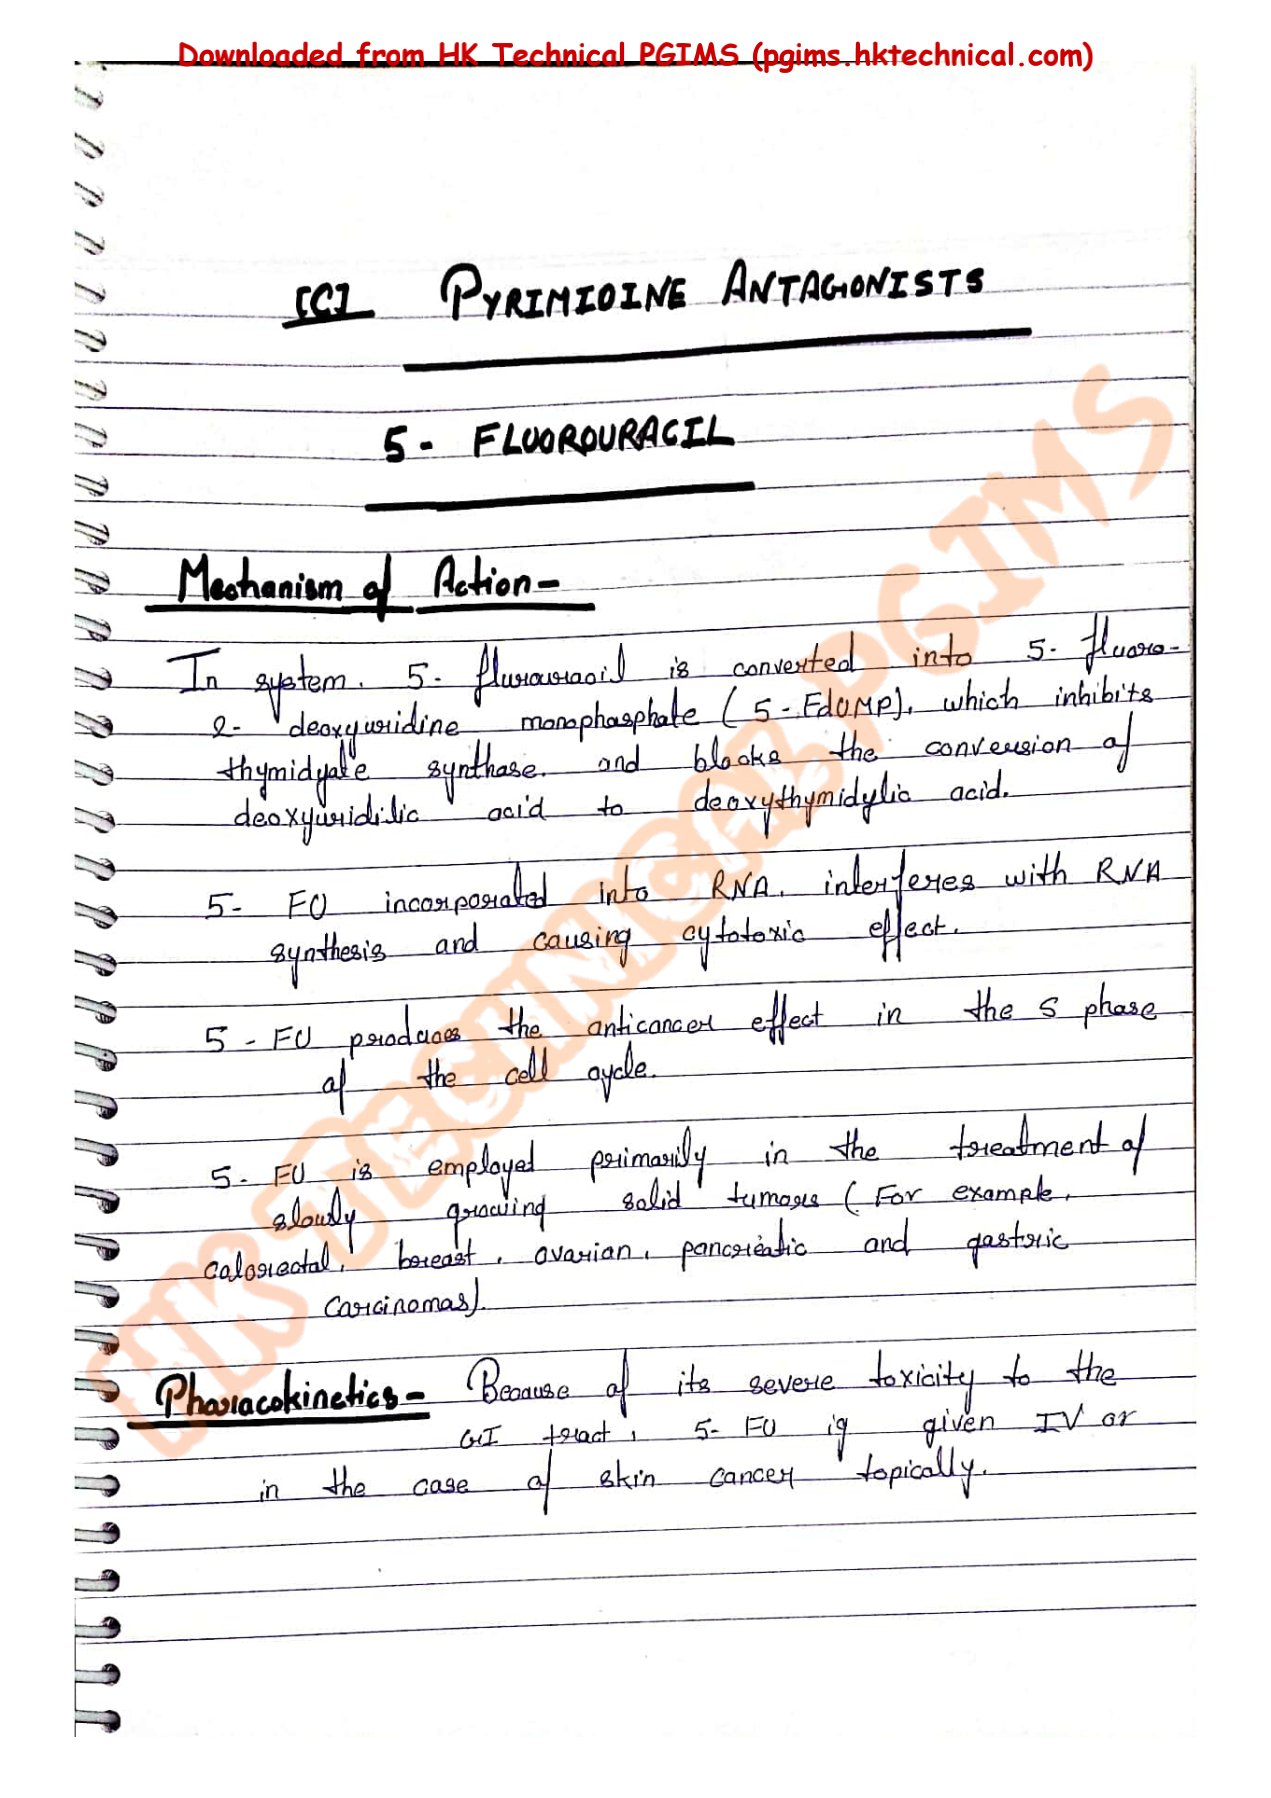 Downloaded from HK Technical PGIMS (pgims.hktechnical.com)
[C] PYRIMIDINE ANTAGONISTS
5 - FLUOROURACIL
Mechanism of Action -
In system. 5- flurouracil is converted into 5- fluoro-
2- deoxyuridine monophosphate (5-FdUMP), which inhibits
thymidyate synthase. and blocks the conversion of
deoxyuridilic acid to deoxythymidylic acid.
5- FU incorporated into RNA. interferes with RNA
synthesis and causing cytotoxic effect.
5 - FU produces the anticancer effect in the S phase
of the cell cycle.
5- FU is employed primarily in the treatment of
slowly growing solid tumors (For example,
colorectal, breast, ovarian, pancreatic and gastric
carcinomas).
Pharacokinetics - Because of its severe toxicity to the
GI tract, 5- FU is given IV or
in the case of skin cancer topically.
HK TECHNICAL PGIMS